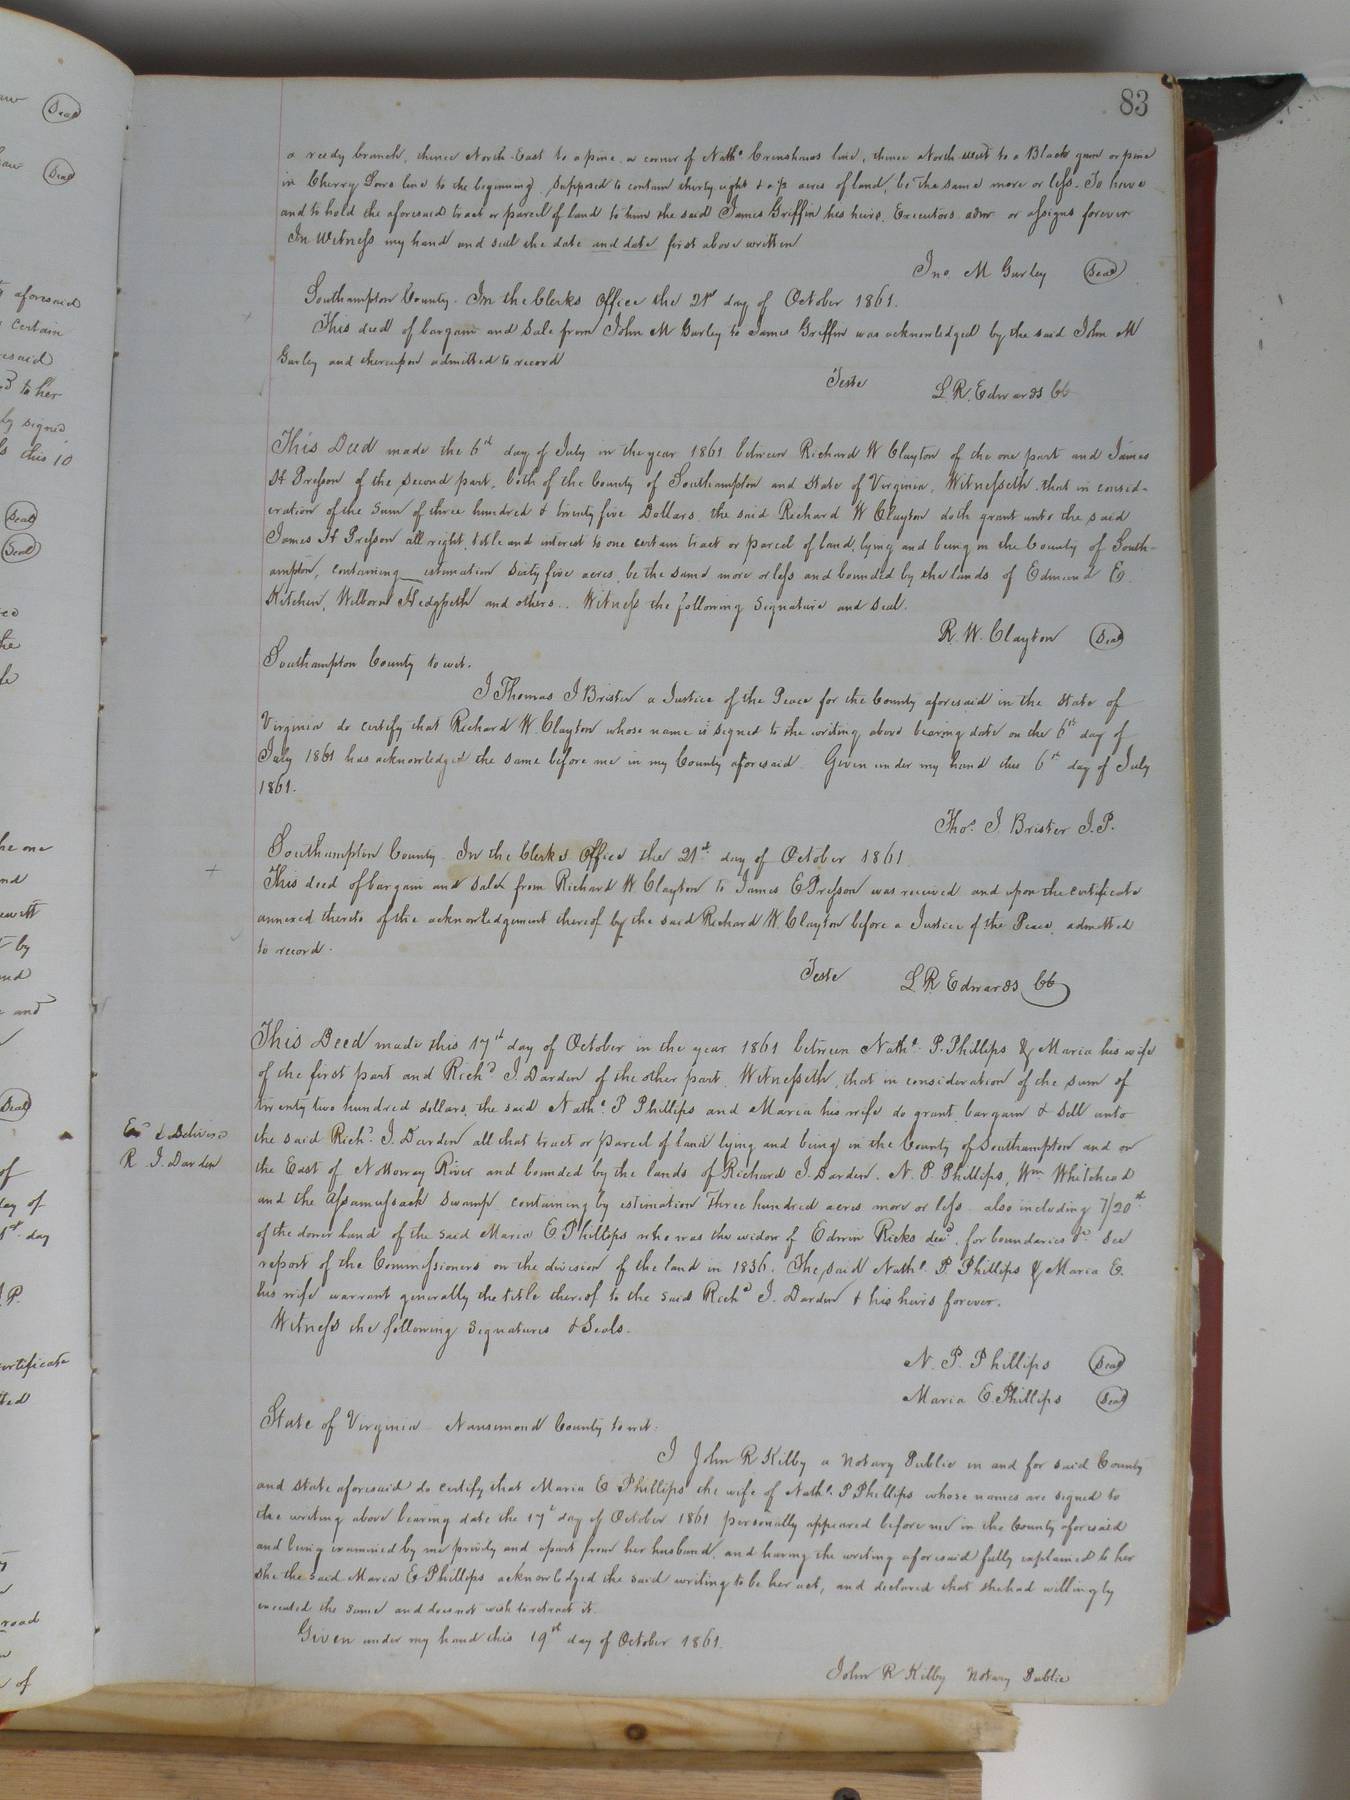 83
a reedy branch, thence North East to a pine a corner of Nathl Crenshaws line, thence North west to a Black gum or pine
in Cherry line to the beginning. Supposed to contain thirty eight & a ½ acres of land, be the same more or less. To have
and to hold the aforesaid tract or parcel of land to him the said James Griffin his heirs, Executors admr or assigns forever
In Witness my hand and seal the date and date first above written
Jno M Gurley Seal
Southampton County. In the Clerks Office the 21st day of October 1861.
This deed of bargain and Sale from John M Gurley to James Griffin was acknowledged by the said John M
Gurley and thereupon admitted to record
Teste L. R. Edwards CC
This Deed made the 6th day of July in the year 1861 between Richard W Clayton of the one part and James
H Presson of the second part, both of the County of Southampton and State of Virginia, Witnesseth that in consid-
eration of the sum of three hundred & twenty five Dollars, the said Richard W Clayton doth grant unto the said
James H Presson all right, title and interest to one certain tract or parcel of land, lying and being in the County of South-
ampton, containing estimation Sixty five acres, be the same more or less and bounded by the lands of Edmund E.
Kitchen, Welborn Hedgpeth and others.. Witness the following Signature and Seal.
R. W. Clayton Seal
Southampton County to wit.
I Thomas J Brister a Justice of the Peace for the County aforesaid in the State of
Virginia do certify that Richard W. Clayton whose name is signed to the writing above bearing date on the 6th day of
July 1861 has acknowledged the same before me in my County aforesaid. Given under my hand this 6th day of July
1861.
Thos J. Brister J. P.
Southampton County. In the Clerks Office the 21st day of October 1861
This deed of bargain and Sale from Richard W Clayton to James E Presson was received and upon the certificate
annexed thereto of the acknowledgement thereof by the said Richard W. Clayton before a Justice of the Peace, admitted
to record.
Teste L. R. Edwards CC
This Deed made this 17th day of October in the year 1861 between Nathl. P. Phillips & Maria his wife
of the first part and Richd J. Darden of the other part, Witnesseth, that in consideration of the sum of
twenty two hundred dollars, the said Nathl. P Phillips and Maria his wife do grant bargain & Sell unto
the said Richd J. Darden all that tract or parcel of land lying and being in the County of Southampton and on
the East of Nottoway River and bounded by the lands of Richard J. Darden, N. P. Phillips, Wm Whitehead
and the Assamussack Swamp containing by estimation Three hundred acres more or less also including 7/20th
of the dower land of the said Maria E. Phillips who was the widow of Edwin Ricks decd. for boundaries &c see
report of the Commissioners on the division of the land in 1836. The said Nathl. P. Phillips & Maria E.
his wife warrant generally the title thereof to the said Richd J. Darden & his heirs forever.
Witness the following Signatures & Seals.
Exd & Delivered
R J. Darden
N. P. Phillips Seal
Maria E. Phillips Seal
State of Virginia Nansemond County to wit.
I John R Kilby a Notary Public in and for said County
and State aforesaid do certify that Maria E Phillips the wife of Nathl. P Phillips whose names are signed to
the writing above bearing date the 17th day of October 1861 personally appeared before me in the County aforesaid
and being examined by me privily and apart from her husband, and having the writing aforesaid fully explained to her
she the said Maria E Phillips acknowledged the said writing to be her act, and declared that she had willingly
executed the same and does not wish to retract it.
Given under my hand this 19th day of October 1861.
John R Kilby Notary Public